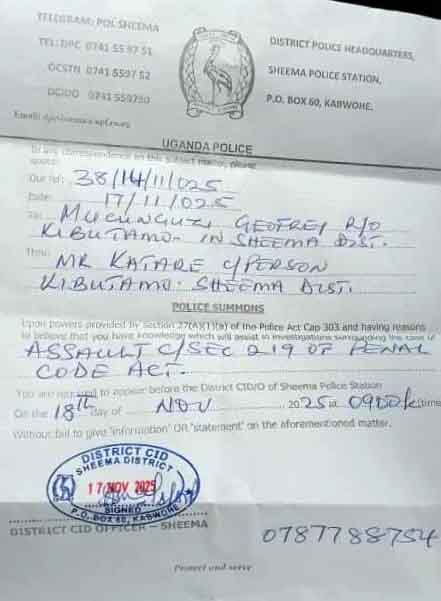 TELEGRAM: POL SHEEMA
TEL: DPC 0741 55 97 51
OCSTN 0741 5597 52
DCIDO 0741 559750
DISTRICT POLICE HEADQUARTERS,
SHEEMA POLICE STATION,
P.O. BOX 60, KABWOHE.
UGANDA POLICE
In any correspondence on this subject matter, please
quote:
Our ref: 38/14/11/025
Date: 17/11/025
To: MUCUNGUZI GEOFREY R/O
KIBUTAMO - IN SHEEMA DIST.
Thru: MR KATARE C/PERSON
KIBUTAMO - SHEEMA DIST.
POLICE SUMMONS
Upon powers provided by Section 27(A)(1)(a) of the Police Act Cap 303 and having reasons
to believe that you have knowledge which will assist in investigations surrounding the case of
ASSAULT C/SEC 219 OF PENAL
CODE ACT.
You are required to appear before the District CID/O of Sheema Police Station
On the 18th day of NOV 2025 at 0900 (time
Without fail to give 'information' OR 'statement' on the aforementioned matter.
DISTRICT CID
SHEEMA DISTRICT
17 NOV 2025
SIGNED
P.O. BOX 60, KABWOHE
DISTRICT CID OFFICER – SHEEMA
0787788754
Protect and serve